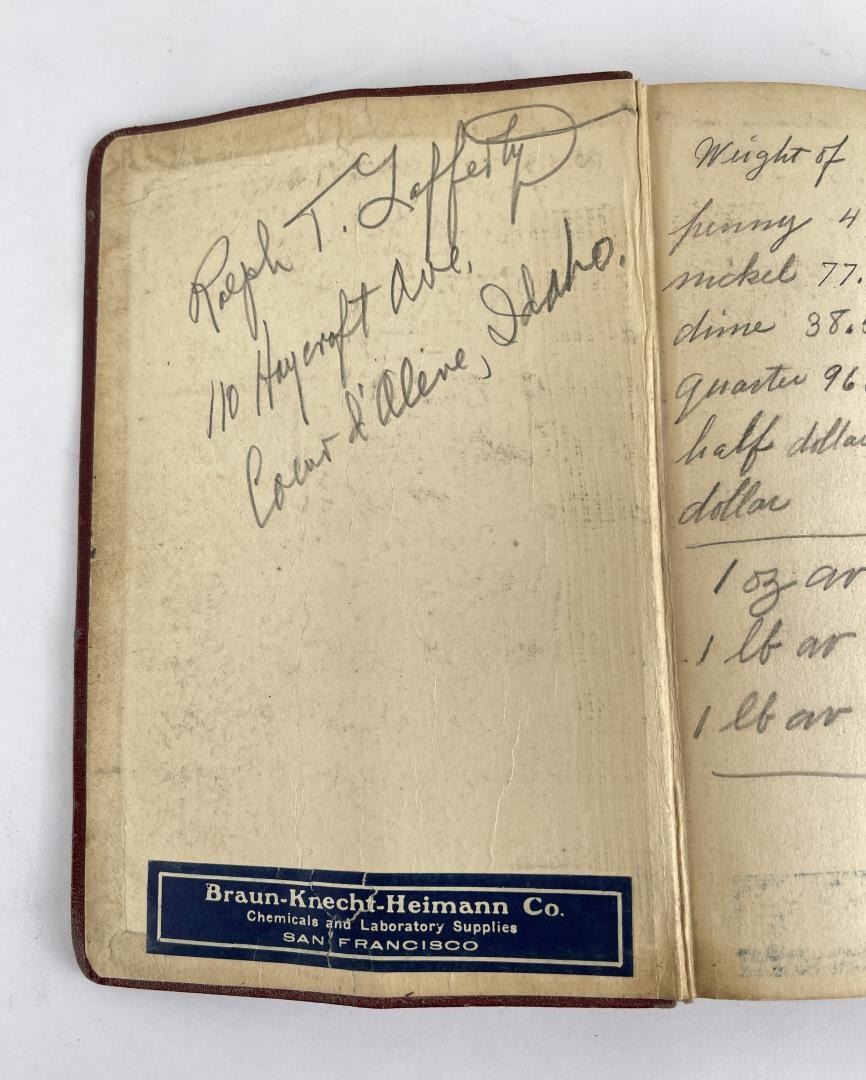 Ralph T. Lafferty
110 Haycroft Ave.
Coeur d'Alene, Idaho.
Braun-Knecht-Heimann Co.
Chemicals and Laboratory Supplies
SAN FRANCISCO
Weight of
penny 4
nickel 77.
dime 38.5
quarter 96.
half dollar
dollar
1 oz av
1 lb av
1 lb av